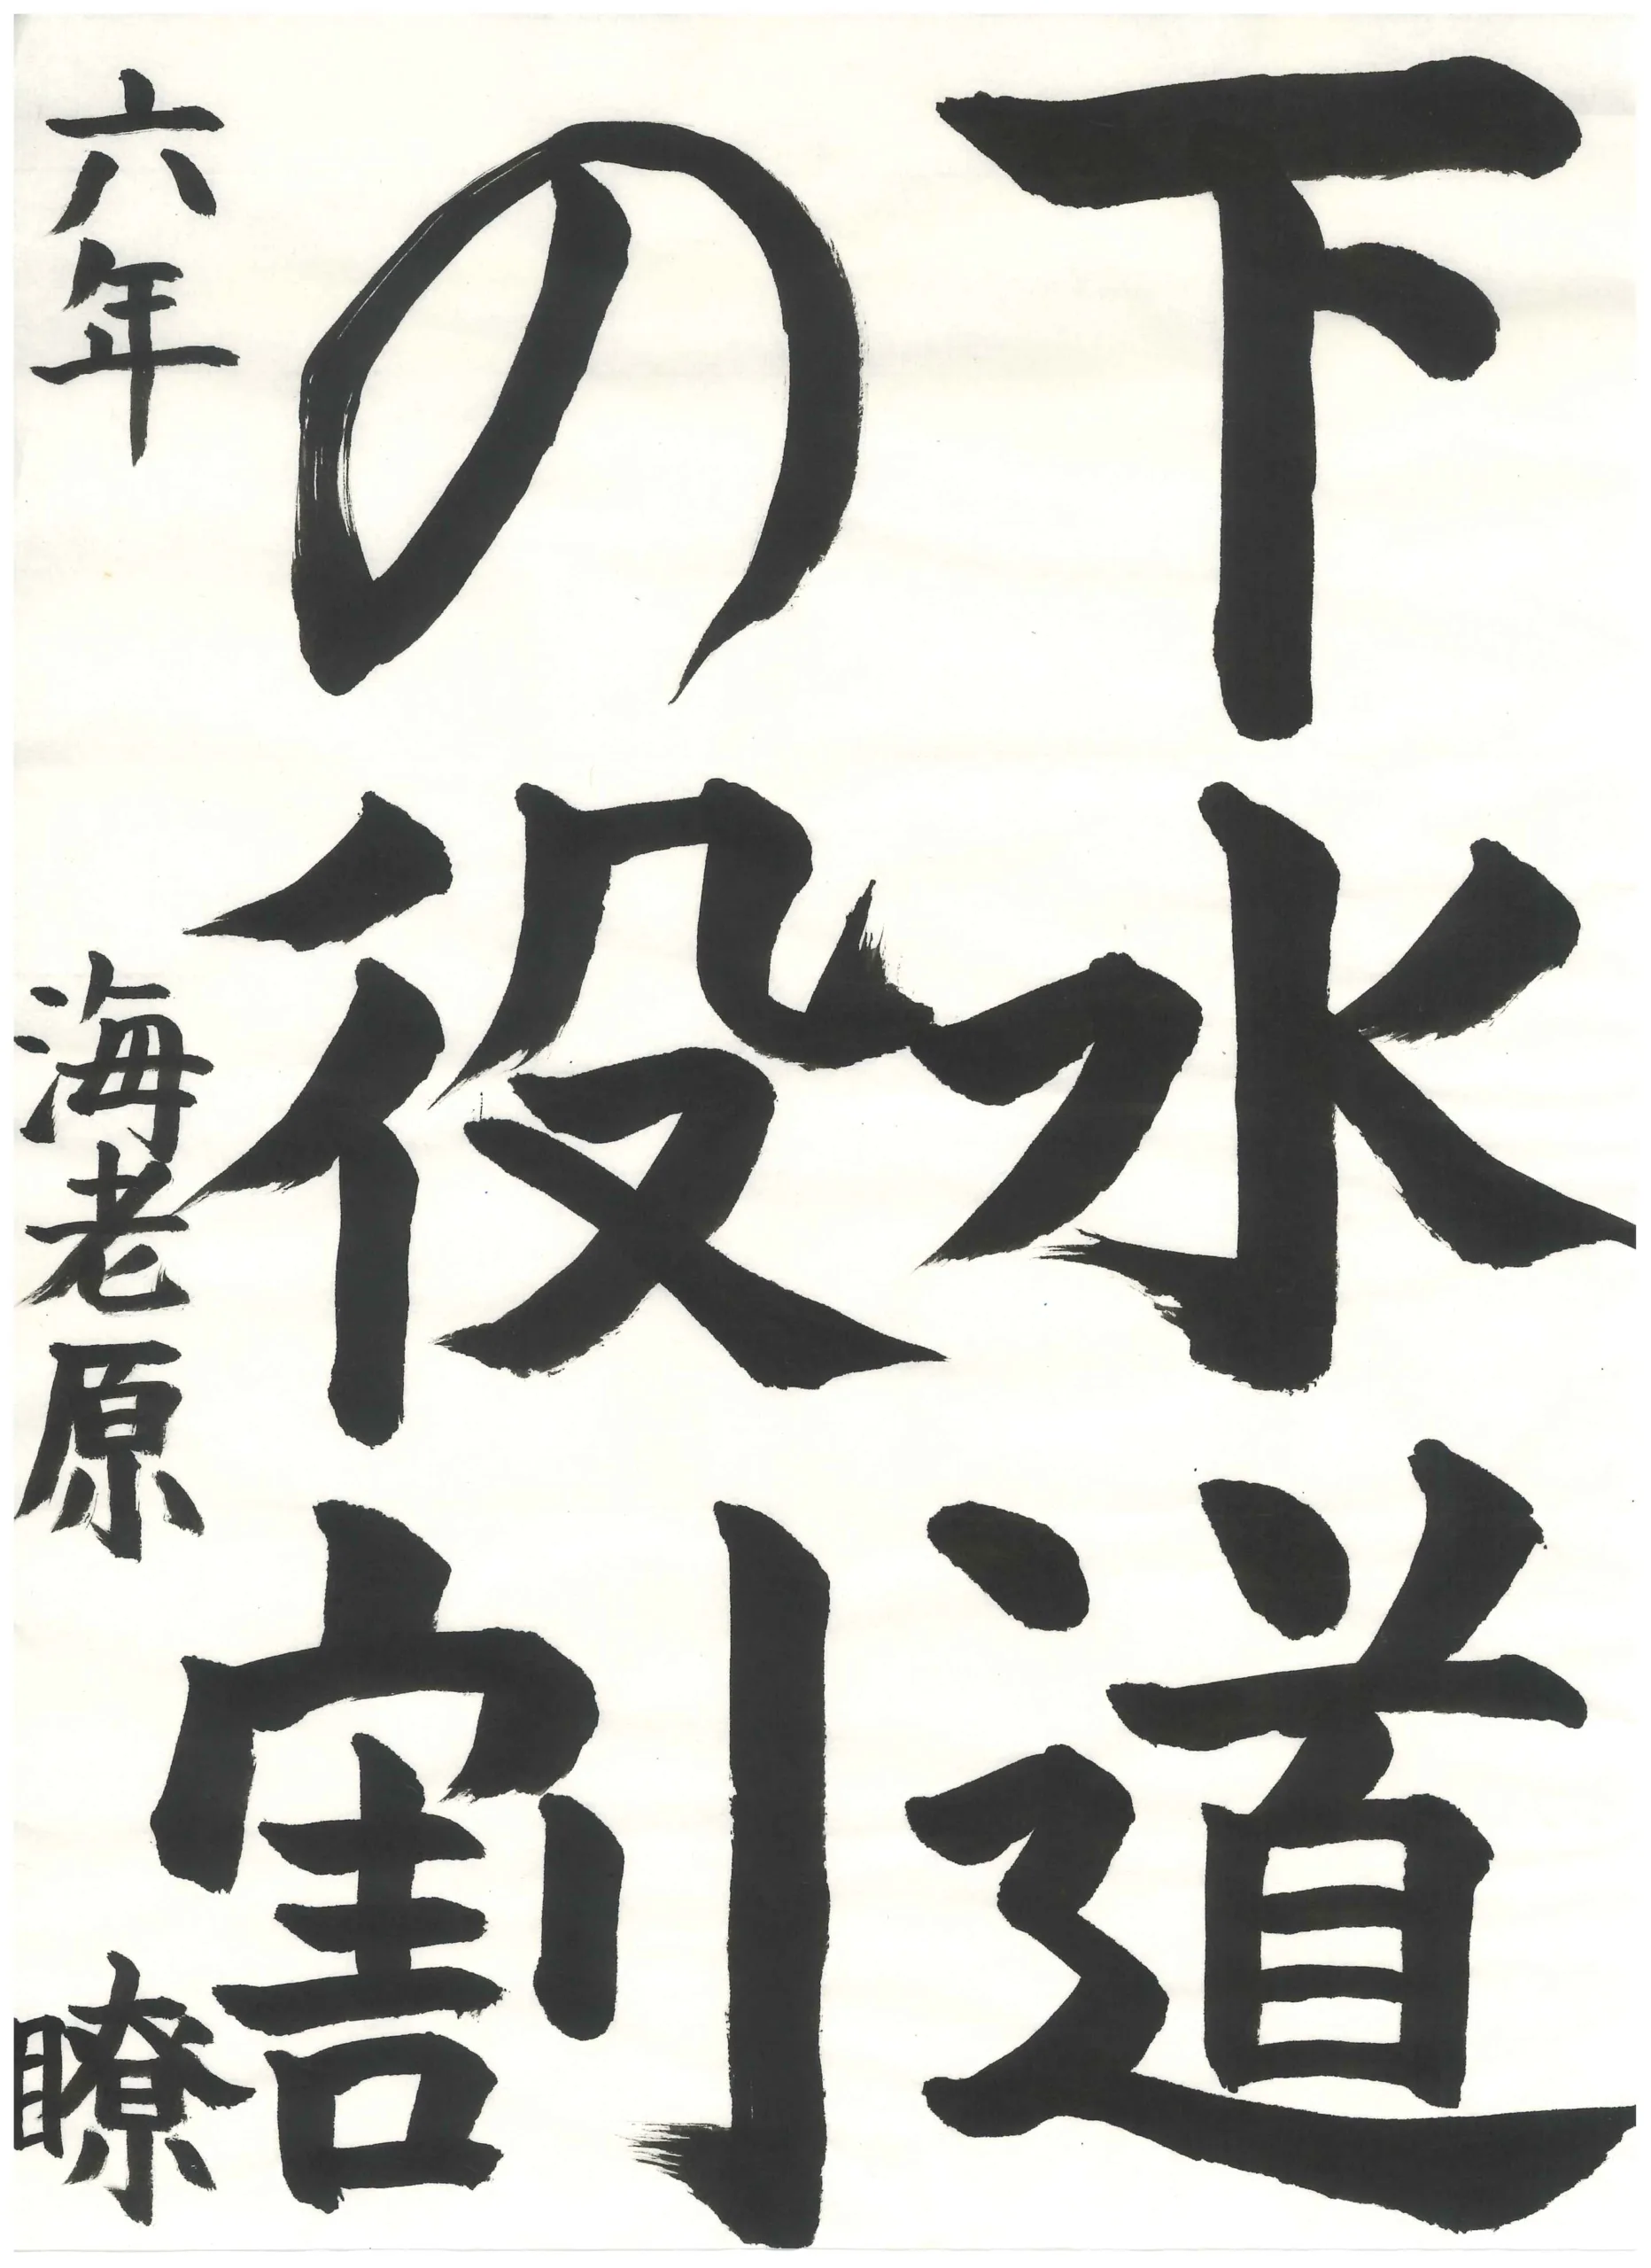 下水道
の役割
六年 海老原 瞭